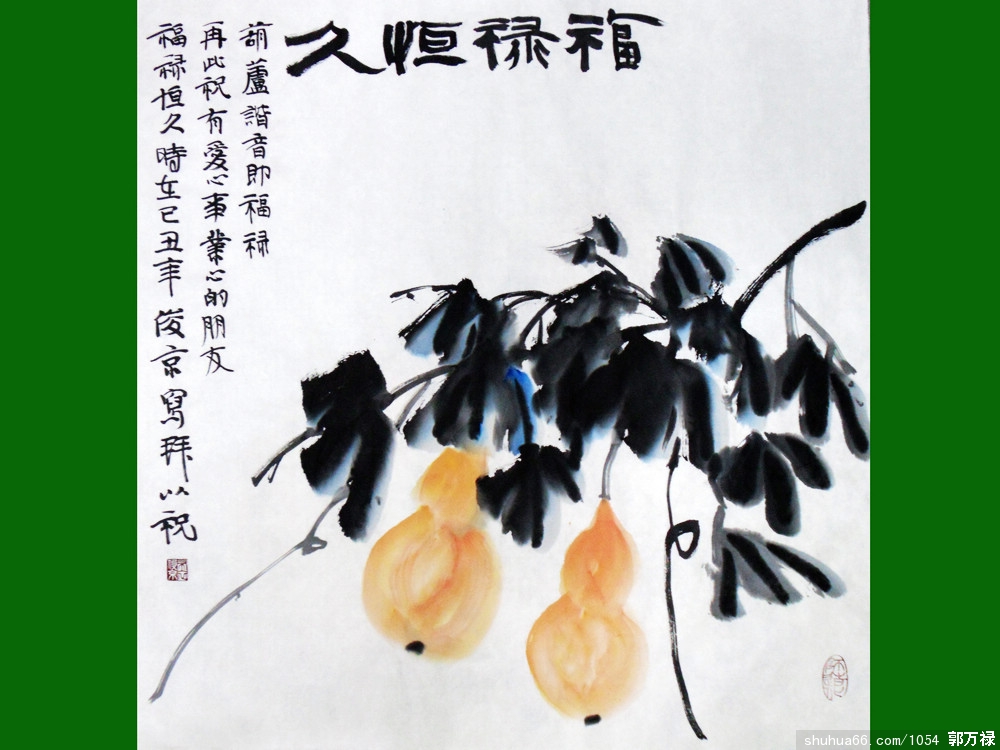 福禄恒久
葫蘆諧音即福禄
再此祝有愛心事業心的朋友
福禄恒久時在己丑年俊京寫拜以祝
shuhua66.com/1054 郭万禄